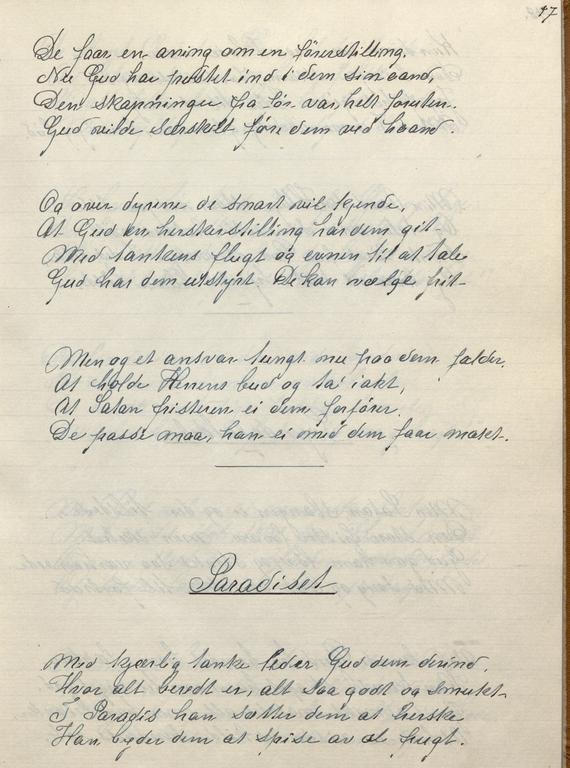 17
De faar en aning om en førerstilling,
Nu Gud har pustet ind i dem sin aand,
Den skapninger fra før var helt foruten.
Gud vilde særskilt føre dem ved haand.
Og over dyrene de snart vil kjende,
At Gud en herskerstilling har dem git
Med tankens flugt og evnen til at tale
Gud har dem utstyrt De kan vælge frit
Men og et ansvar tungt nu paa dem falder,
At holde Herrens bud og ta' i akt,
At Satan fristeren ei dem forfører.
De passe maa, han ei med dem faar makt.
Paradiset
Med kjærlig tanke leder Gud dem derind,
Hvor alt beredt er, alt saa godt og smukt
I Paradis han sætter dem at herske
Han byder dem at spise av al frugt.